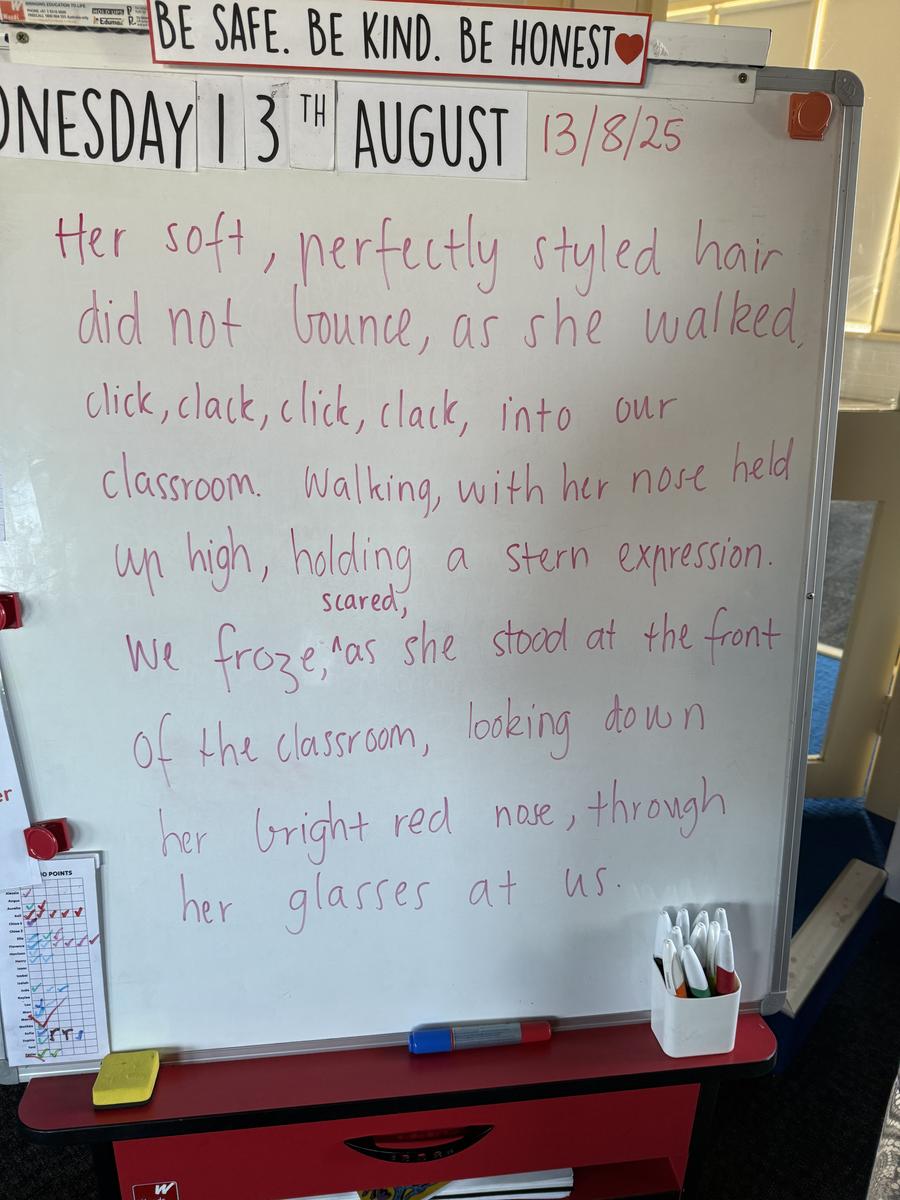 BE SAFE. BE KIND. BE HONEST
DNESDAY 13TH AUGUST 13/8/25
Her soft, perfectly styled hair
did not bounce, as she walked,
click, clack, click, clack, into our
classroom. Walking, with her nose held
up high, holding a stern expression.
scared,
We froze, ^as she stood at the front
of the classroom, looking down
her bright red nose, through
her glasses at us.
POINTS